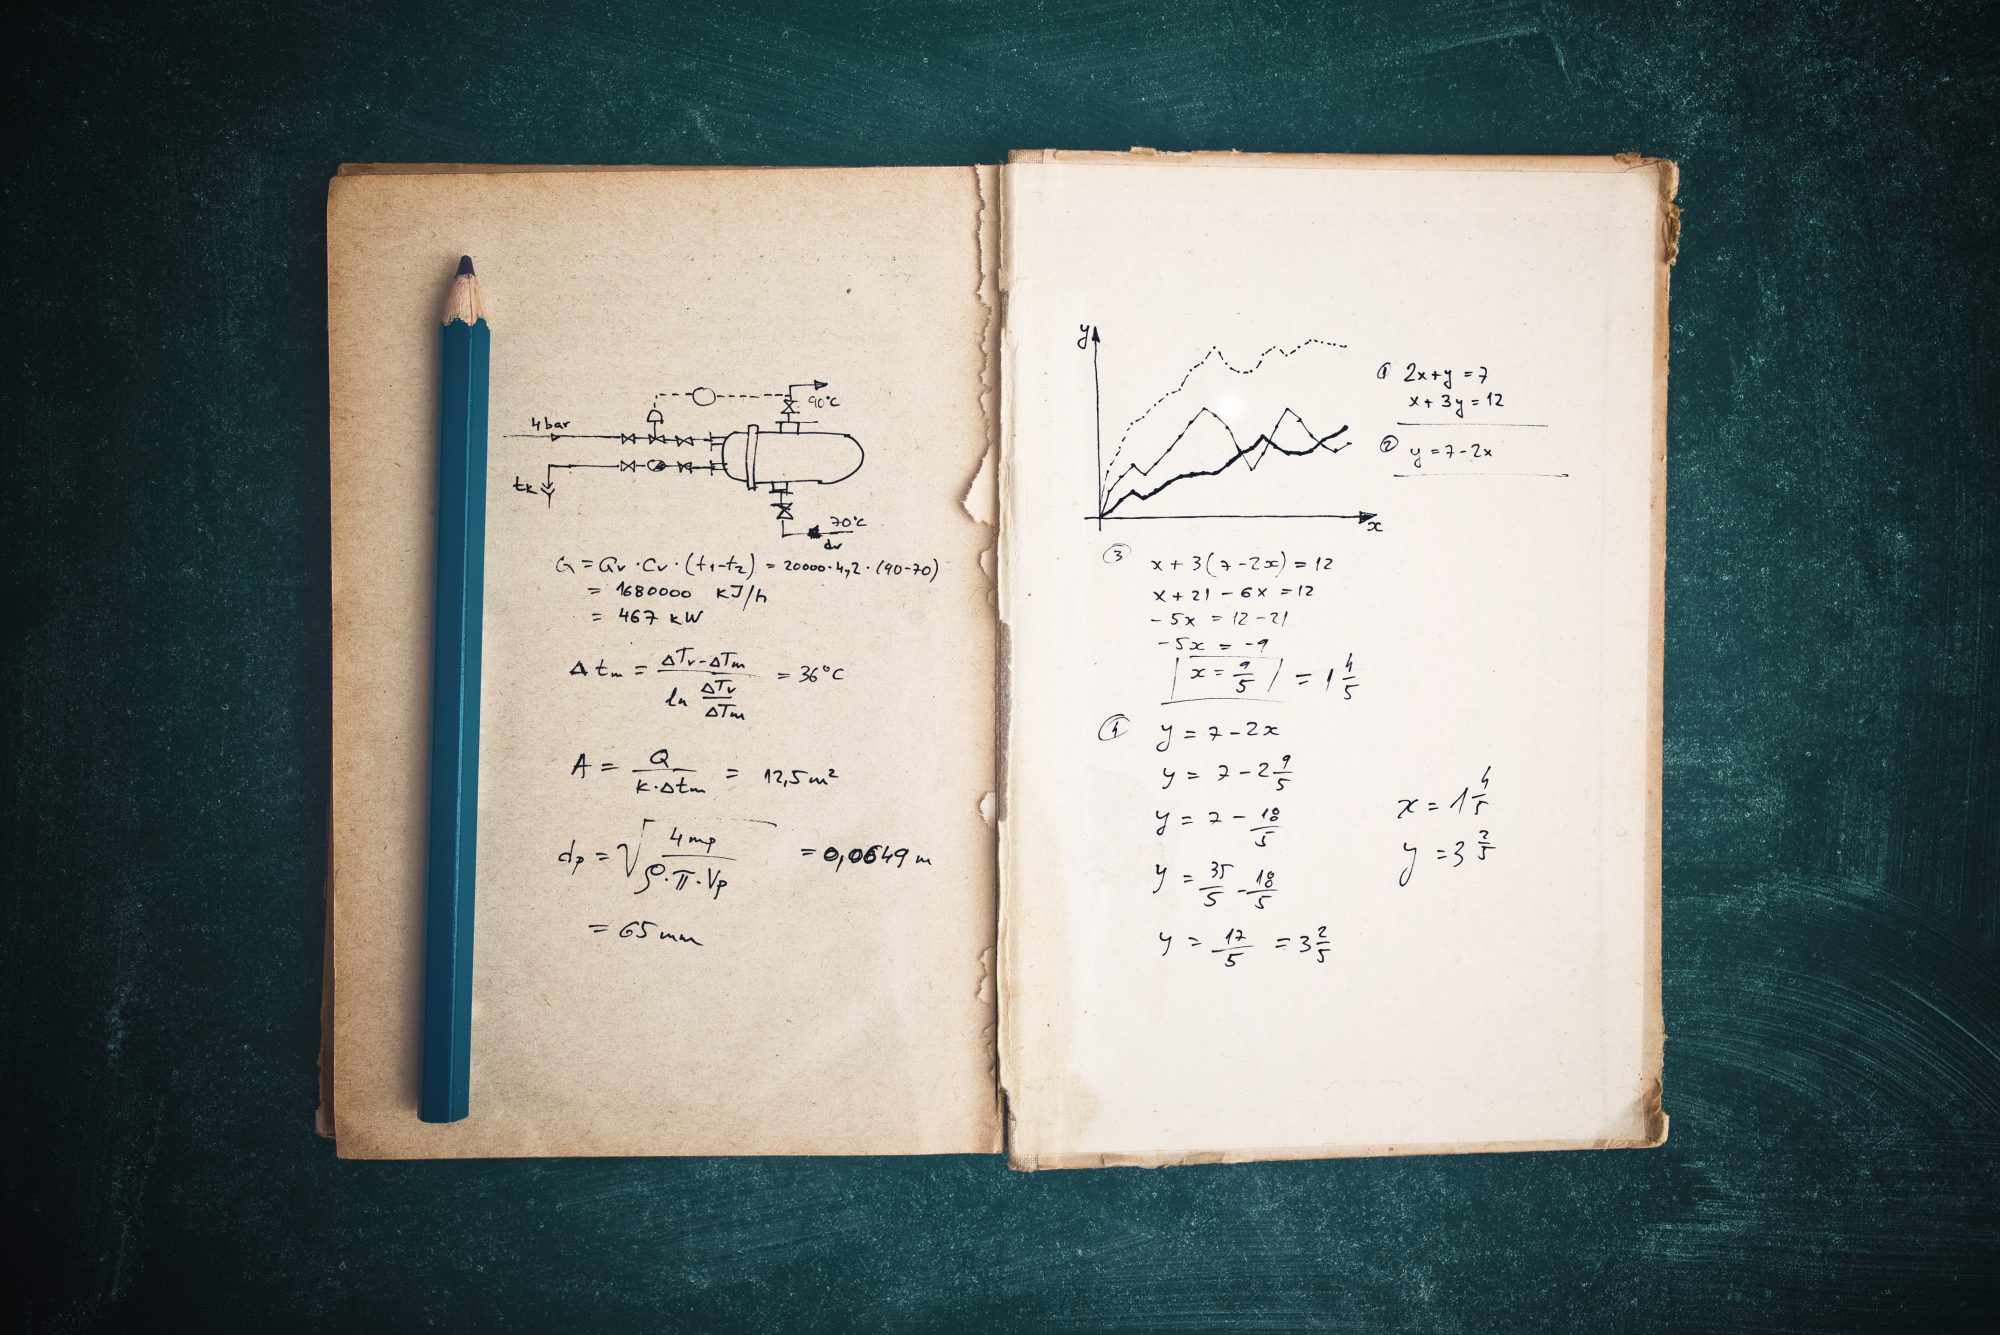 4 bar
90°C
tk
70°C
dv
Q = Qv · Cv · (t1-t2) = 20000 · 4,2 · (90-70)
= 1680000 kJ/h
= 467 kW
Δtm = (ΔTv - ΔTm) / (ln ΔTv/ΔTm) = 36°C
A = Q / (k · Δtm) = 12,5 m²
dp = √(4 mp / (ρ · π · Vp)) = 0,0649 m
= 65 mm
y
x
① 2x + y = 7
x + 3y = 12
② y = 7 - 2x
③ x + 3(7 - 2x) = 12
x + 21 - 6x = 12
-5x = 12 - 21
-5x = -9
x = 9/5 = 1 4/5
④ y = 7 - 2x
y = 7 - 2 9/5
y = 7 - 18/5
y = 35/5 - 18/5
y = 17/5 = 3 2/5
x = 1 4/5
y = 3 2/5